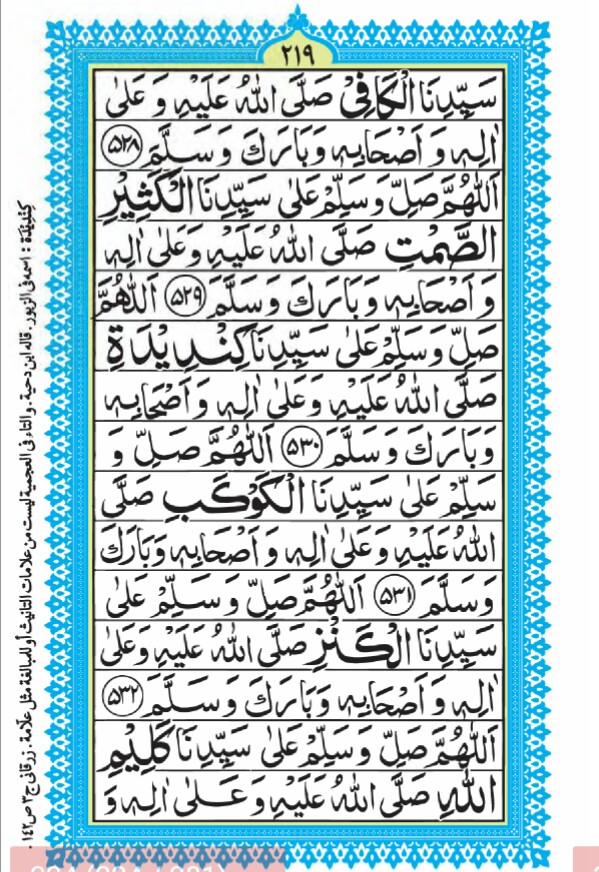 ٢١٩
سَيِّدِنَا الْكَافِيْ صَلَّى اللهُ عَلَيْهِ وَ عَلٰى
اٰلِهٖ وَ اَصْحَابِهٖ وَبَارَكَ وَسَلَّمَ ﴿٥٢٨﴾
اَللّٰهُمَّ صَلِّ وَسَلِّمْ عَلٰى سَيِّدِنَا الْكَثِيْرِ
الصَّمْتِ صَلَّى اللهُ عَلَيْهِ وَعَلٰى اٰلِهٖ
وَ اَصْحَابِهٖ وَبَارَكَ وَسَلَّمَ ﴿٥٢٩﴾ اَللّٰهُمَّ
صَلِّ وَسَلِّمْ عَلٰى سَيِّدِنَا كِنْدِيْدَةَ
صَلَّى اللهُ عَلَيْهِ وَعَلٰى اٰلِهٖ وَاَصْحَابِهٖ
وَبَارَكَ وَسَلَّمَ ﴿٥٣٠﴾ اَللّٰهُمَّ صَلِّ وَ
سَلِّمْ عَلٰى سَيِّدِنَا الْكَوْكَبِ صَلَّى
اللهُ عَلَيْهِ وَعَلٰى اٰلِهٖ وَاَصْحَابِهٖ وَبَارَكَ
وَسَلَّمَ ﴿٥٣١﴾ اَللّٰهُمَّ صَلِّ وَسَلِّمْ عَلٰى
سَيِّدِنَا الْكَنْزِ صَلَّى اللهُ عَلَيْهِ وَعَلٰى
اٰلِهٖ وَاَصْحَابِهٖ وَبَارَكَ وَسَلَّمَ ﴿٥٣٢﴾
اَللّٰهُمَّ صَلِّ وَسَلِّمْ عَلٰى سَيِّدِنَا كَلِيْمِ
اللهِ صَلَّى اللهُ عَلَيْهِ وَ عَلٰى اٰلِهٖ وَ
كِنْدِيْدَة : اسمه فى الزبور . قاله ابن دحية . والتاء فى العجمية ليست من علامات التانيث أو للمبالغة مثل علّامة . زرقانى ج ٣ ص ١٤٢ .